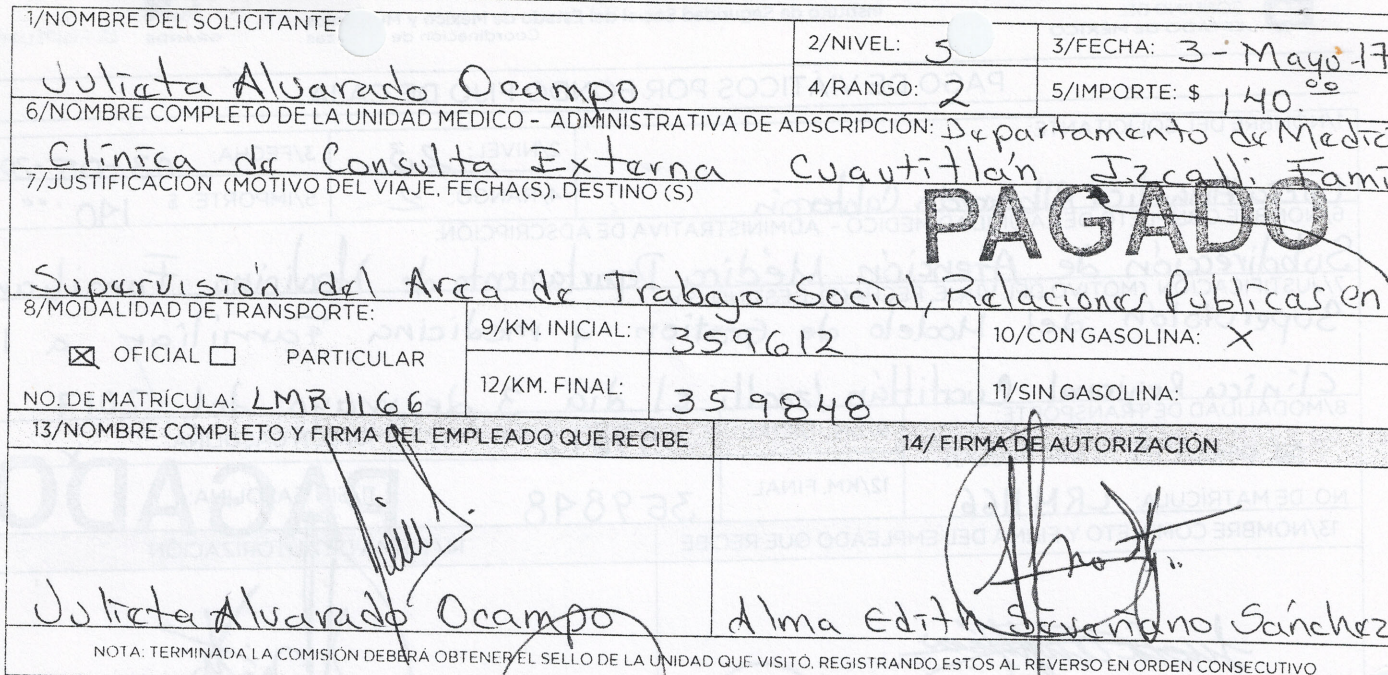 1/NOMBRE DEL SOLICITANTE:
Julieta Alvarado Ocampo
2/NIVEL: 5
3/FECHA: 3 - Mayo-17
4/RANGO: 2
5/IMPORTE: $ 140.00
6/NOMBRE COMPLETO DE LA UNIDAD MEDICO - ADMINISTRATIVA DE ADSCRIPCIÓN: Departamento de Medic
Clínica de Consulta Externa Cuautitlán Izcalli Fami
7/JUSTIFICACIÓN (MOTIVO DEL VIAJE, FECHA(S), DESTINO (S)
PAGADO
Supervisión del Area de Trabajo Social, Relaciones Publicas en
8/MODALIDAD DE TRANSPORTE:
☒ OFICIAL ☐ PARTICULAR
NO. DE MATRÍCULA: LMR1166
9/KM. INICIAL: 359612
10/CON GASOLINA: X
12/KM. FINAL: 359848
11/SIN GASOLINA:
13/NOMBRE COMPLETO Y FIRMA DEL EMPLEADO QUE RECIBE
14/ FIRMA DE AUTORIZACIÓN
Julieta Alvarado Ocampo
Alma Edith Sánchez
NOTA: TERMINADA LA COMISIÓN DEBERÁ OBTENER EL SELLO DE LA UNIDAD QUE VISITÓ, REGISTRANDO ESTOS AL REVERSO EN ORDEN CONSECUTIVO